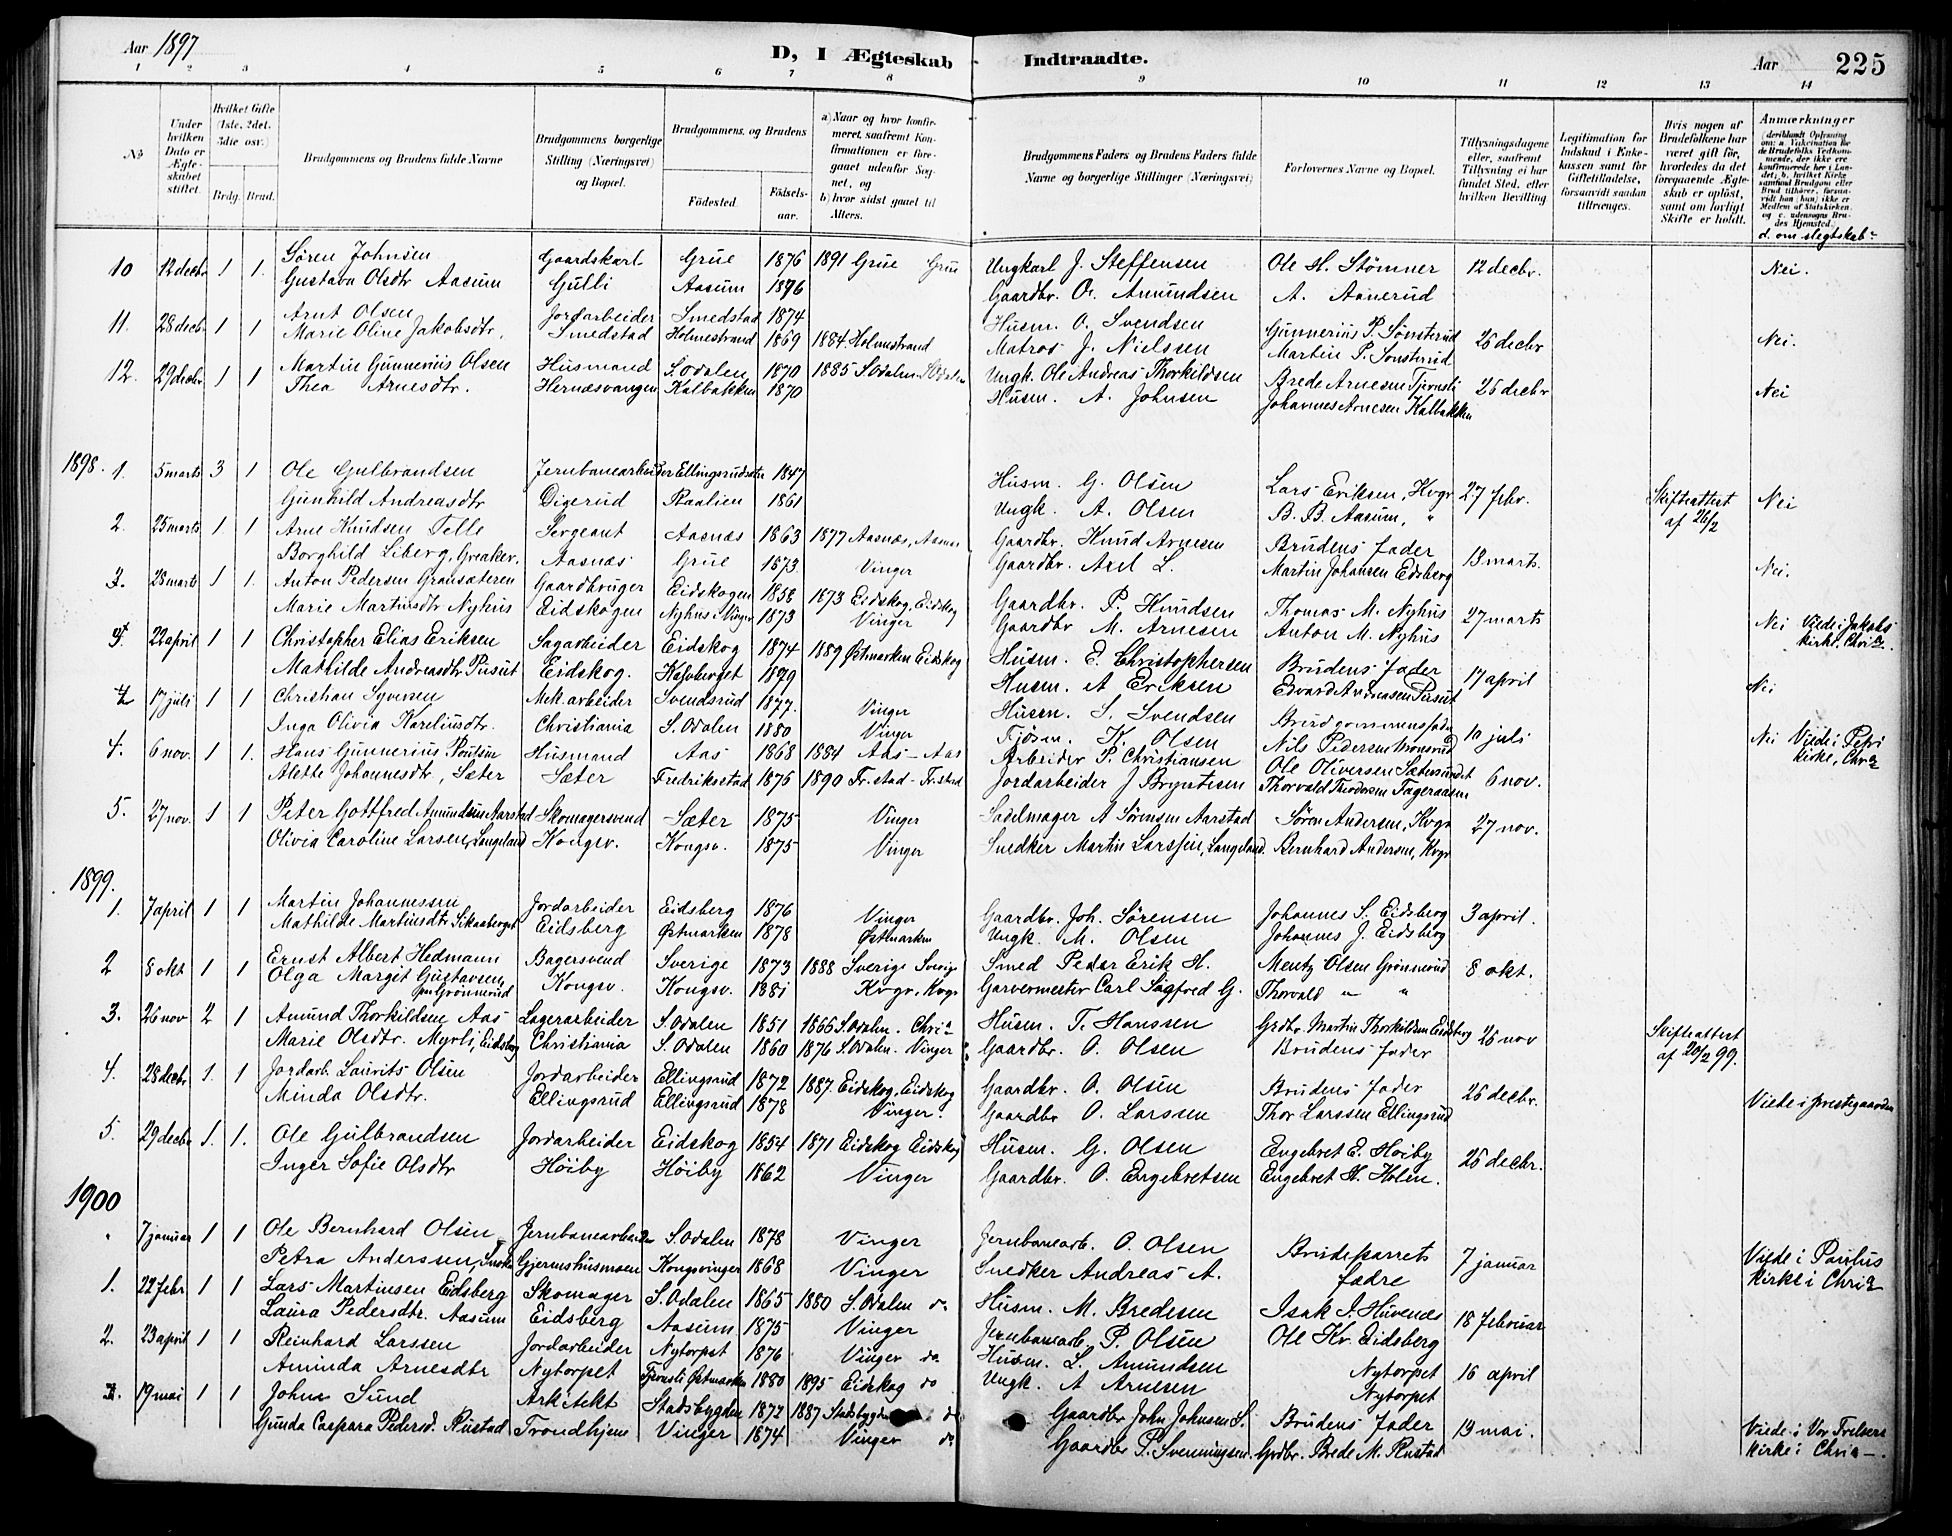 Aar 1897
D, I Ægteskab Indtraadte.
Aar 225
1 2 3 4 5 6 7 8 9 10 11 12 13 14
No
Under hvilken Dato er Ægteskabet stiftet.
Hvilket Gifte (1ste, 2det, 3die osv.)
Brdg. Brud.
Brudgommens og Brudens fulde Navne
Brudgommens borgerlige Stilling (Næringsvei) og Bopæl.
Brudgommens og Brudens
Fødested. Fødselsaar.
a) Naar og hvor konfirmeret, saafremt Konfirmationen er foregaaet udenfor Sognet, og
b) hvor sidst gaaet til Alters.
Brudgommens Faders og Brudens Faders fulde Navne og borgerlige Stillinger (Næringsvei)
Forlovernes Navne og Bopæl.
Tillysningsdagene eller, saafremt Tillysning ei har fundet Sted, efter hvilken Bevilling
Legitimation for Indskud i Enkekassen samt for Giftetilladelse, forsaavidt saadan tiltrænges.
Hvis nogen af Brudefolkene har været gift før, hvorledes da det foregaaende Ægteskab er opløst, samt om lovligt Skifte er holdt.
Anmærkninger
d. om slegtskab
10 12 decbr 1 1. Søren Johnsen Gaardskarl Grue 1876 1891 Grue Grue Ungkarl J. Steffensen Ole H. Stømner 12 decbr. Nei.
Gustava Olsdtr Aasum Gulli Aasum 1876 Gaardbr. O. Amundsen A. Aanerud
11. 28 decbr 1 1 Arnt Olsen Jordarbeider Smedstad 1874 Husm. O. Svendsen Gunnerius P. Sønsterud 26 decbr Nei.
Marie Oline Jakobsdtr. Smedstad Holmestrand 1869 1884 Holmestrand Matros J. Nielssen Martin P. Sønsterud
12. 29 decbr 1 1 Martin Gunnerius Olsen Husmand S. Odalen 1870 1885 S Odalen S Odalen Ungk. Ole Andreas Thorkildsen Brede Arnesen Tjernsli 25 decbr Nei
Thea Arnesdtr. Hernæsvangen Kalbakken 1870 Husm. A. Johnsen Johannes Arnesen Kalbakken
1898. 1. 5 marts 3 1 Ole Gulbrandsen Jernbanearbeider Ellingsrudsæter 1847 Husm. G. Olsen Lars Eriksen, Kvgr 27 febr. Skifteattest af 26/2 Nei
Gunhild Andreasdtr Digerud Raalien 1861 Ungk. A. Olsen B. B. Aasum, "
2. 25 marts 1 1 Arne Knudsen Telle Sergeant Aasnæs 1863 1877 Aasnæs, Aasnæs Gaardbr. Knud Arnesen Brudens fader 13 marts. Nei.
Borghild Liberg, Greaker. Aasnæs Grue 1873 Vinger Gaardbr. Axel L. Martin Johansen Eidsberg
3. 28 marts 1 1. Anton Pedersen Gransæteren Gaardbruger Eidskogen 1858 1873 Eidskog, Eidskog Gaardbr. P. Knudsen Thomas M. Nyhus 27 marts
Marie Martinsdtr Nyhus Eidskogen Nyhus i Vinger 1873 Vinger Gaardbr M. Arnesen Anton M. Nyhus Nei Viede i Jakobs kirke, Chria.
4. 22 april 1 1 Christopher Elias Eriksen Sagarbeider Eidskog 1874 1889 Østmarken Eidskog Husm. E. Christophersen Brudens fader 17 april
Mathilde Andreasdtr Pusut Eidskog. Kalvberget 1879 Husm. A Eriksen Edvard Andreasen Pusut Nei
17 juli 1 1 Christian Syversen Mek. arbeider Svendsrud 1877. Vinger Husm. S. Svendsen Brudgommens fader 10 juli
Inga Olivia Kareliusdtr. Christiania S. Odalen 1880 Vinger Tjosm. K. Olsen Nils Pedersen Nei Viede i Petri kirke, Chria
4. 6 nov. 1 1. Hans Gunnerius Poulsen Husmand Aas 1868 1884 Aas - Aas Arbeider P. Christiansen Ole Oliversen Sætersundet 6 nov.
Mette Johannesdtr, Sæter Sæter Fredriksstad 1875 1890 Fr. stad - Fr. stad Jordarbeider J Bryntesen Thorvald Theodorsen Fageraasen
5. 27 nov. 1 1 Peter Gottfred Amundsen Aarstad Skomagersvend Sæter 1875 Vinger Sadelmager A Sørensen Aarstad Søren Andersen, Kvgr 27 nov.
Olivia Caroline Larsen, Langeland Kongsv. Kongsv. 1875 Vinger Snedker Martin Larssen, Langeland. Bernhard Andersen, Kvgr
1899.
1. 7 april 1 1 Martin Johannessen Jordarbeider Eidsberg 1876 Vinger Gaardbr. Joh. Sørensen Johannes S. Eidsberg 3 april.
Mathilde Martinsdtr Sikaaberget Eidsberg Østmarken 1878 Østmarken Ungk. M. Olsen Johannes J. Eidsberg
2 8 okt 1 1 Ernst Albert Hedmann Bagersvend Sverige 1873 1888 Sverige Sverige Smed Peder Erik H. Mentz Olsen Grønnerud 8 okt.
Olga Margit Gustavsen, Grønnerud Kongsv. Kongsv. 1881 Kvgr, Kvgr Garvermester Carl Sigfred G. Thorvald " "
3. 26 nov 2 1 Amund Thorkildsen Aas Lagerarbeider S. Odalen 1851 1866 S. Odalen. Chria Husm. T. Hanssen Grdbr. Martin Thorkildsen Eidsberg 26 nov Skifteattest af 20/2 99.
Marie Olsdtr. Myrli, Eidsberg Christiania S. Odalen 1860 1876 S. Odalen. Vinger Gaardbr. O. Olsen Brudens fader
4. 28 decbr 1. 1 Jordarb. Laurits Olsen Jordarbeider Ellingsrud 1872 1887 Eidskog, Eidskog Gaardbr. O. Olsen Brudens fader 26 decbr.
Minda Olsdtr. Ellingsrud Ellingsrud 1878 Vinger. Gaardbr O. Larssen Thor Larssen Ellingsrud Viede i prestegaarden
5. 29 decbr 1. 1. Ole Gulbrandsen Jordarbeider Eidskog 1854 1871 Eidskog Eidskog Husm. G. Olsen Engebret E. Høiby 26 decbr.
Inger Sofie Olsdtr Høiby Høiby 1862 Vinger Gaardbr. O. Engebretsen Engebret H. Holen.
1900
" 7 januar 1 1 Ole Bernhard Olsen Jernbanearbeider S. Odalen 1878 Vinger Jernbanearb. O. Olsen Brudeparrets fædre 7 januar Viede i Paulus kirke i Chria
Petra Anderssen, Gjermshusmoen Kongsvinger 1868 Vinger Snedker Andreas A.
1. 22 febr 1 1 Lars Martinsen Eidsberg Skomager S. Odalen 1865 1880 S. Odalen do Husm. M. Bredesen Isak I. Huvenes 18 februar
Laura Pedersdtr. Aasum Eidsberg Aasum 1875 Vinger Jernbanearb. P. Olsen Ole Kr. Eidsberg
2. 23 april 1 1 Reinhard Larssen Jordarbeider Nytorpet 1876 Vinger do Husm. L. Amundsen Nytorpet 16 april
Aminda Arnesdtr Nytorpet Tjernsli Østmarken 1880 1895 Eidskog do Ungk. A Arnesen Nytorpet
3. 19 mai 1 1 Johan Sund Arkitekt Stadsbygden 1872 1887 Stadsbygden do Gaardbr John Johnsen S. Brudens fader 13 mai. Viede i Vor Frelsers kirke i Chria.
Gunda Caspara Pedersd. Rustad Trondhjem Vinger 1874 Vinger do Gaardbr P. Svenningsen Grdbr. Brede M. Rustad